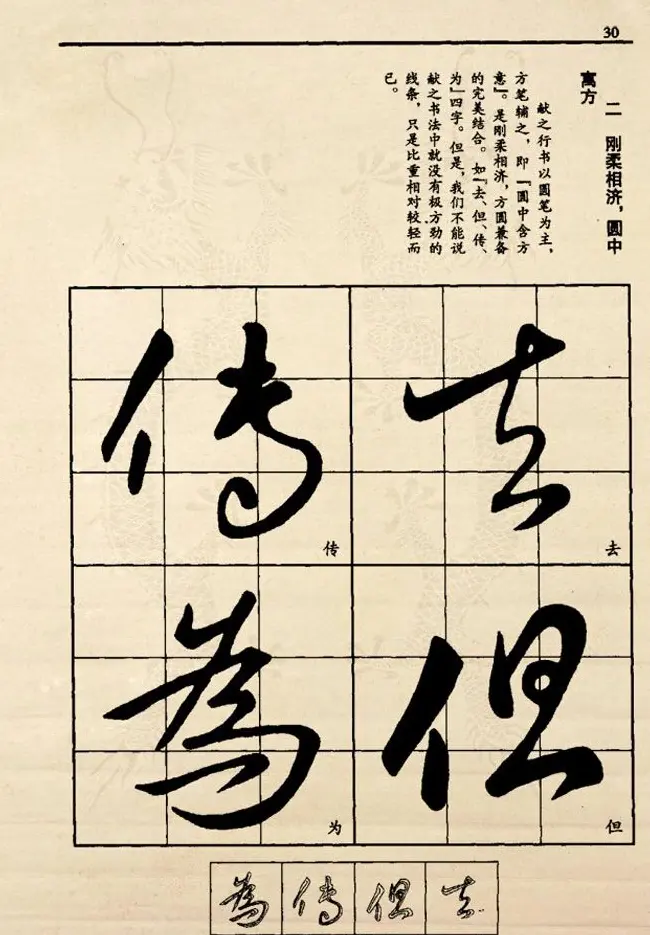 30
二　刚柔相济，圆中
寓方
献之行书以圆笔为主，
方笔辅之，即『圆中含方
意』。是刚柔相济，方圆兼备
的完美结合。如『去、但、传、
为』四字。但是，我们不能说
献之书法中就没有极方劲的
线条，只是比重相对较轻而
已。
去
但
傳
為
去
但
传
为
去
但
傳
為